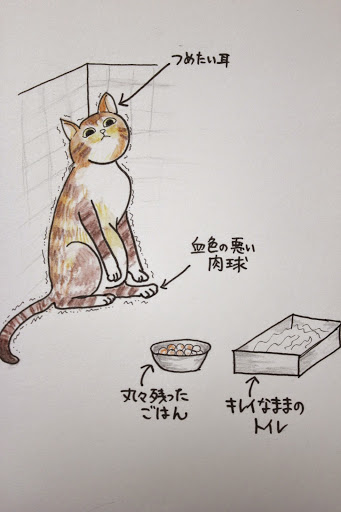 つめたい耳
血色の悪い
肉球
丸々残った
ごはん
キレイなままの
トイレ